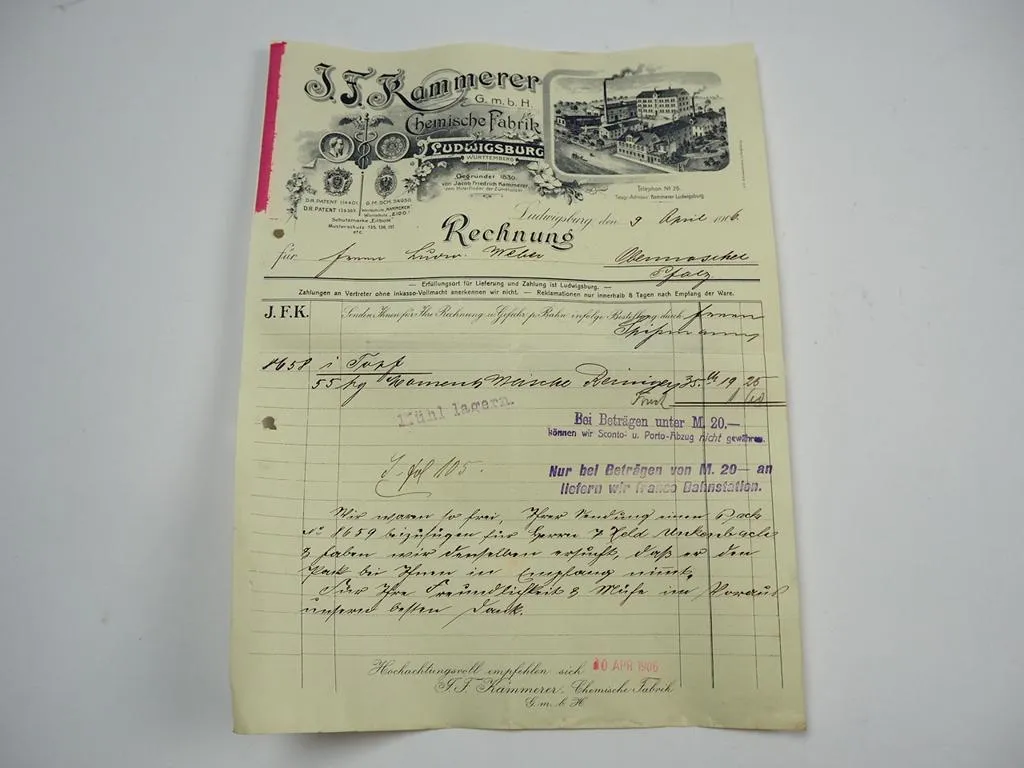 J. F. Kammerer
G. m. b. H.
Chemische Fabrik
LUDWIGSBURG
WÜRTTEMBERG
Gegründet 1830
von Jacob Friedrich Kammerer
dem Miterfinder der Zündhölzer.
D.R. PATENT
G.M.SCH. 54050
D.R. PATENT
Schutzmarke „
Musterschutz 135, 136, 137.
etc.
Telephon No 26.
Telegr.-Adresse: Kammerer Ludwigsburg
Ludwigsburg, den 9 April 1906.
Rechnung
für Herrn Ludw. Weber Obermoschel
Pfalz
Erfüllungsort für Lieferung und Zahlung ist Ludwigsburg.
Zahlungen an Vertreter ohne Inkasso-Vollmacht anerkennen wir nicht. — Reklamationen nur innerhalb 8 Tagen nach Empfang der Ware.
J. F. K.
Senden Ihnen für Ihre Rechnung u. Gefahr p. Bahn infolge Bestellung durch Herrn
8658 1 Topf
55 kg Moment Wäsche Reiniger 35. M 19 25
Kühl lagern.
Bei Beträgen unter M. 20.—
können wir Sconto- u. Porto-Abzug nicht gewähren.
105.
Nur bei Beträgen von M. 20— an
liefern wir franco Bahnstation.
Wir waren so frei, Ihrer Sendung einen Pack
No 8659 beizufügen für Herrn Held Unkenbach
& haben wir denselben ersucht, daß er den
Pack bei Ihnen in Empfang nimt.
Für Ihre Freundlichkeit & Mühe im Voraus
unsern besten Dank.
Hochachtungsvoll empfehlen sich
10 APR 1906
J. F. Kammerer, Chemische Fabrik
G. m. b. H.